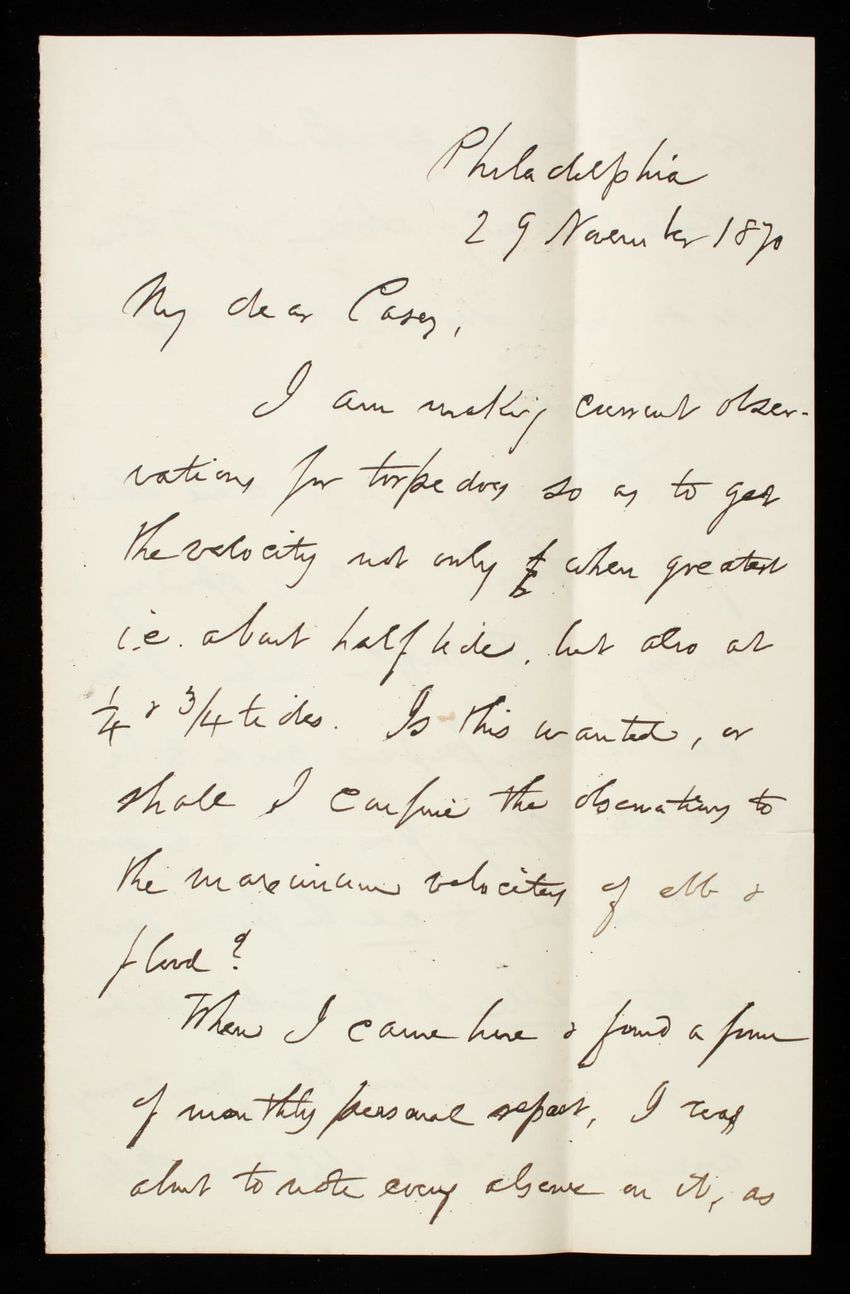 Philadelphia
29 November 1870
My dear Casey,
I am making current obser-
vations for torpedoes so as to get
the velocity not only when greatest
i.e. about half tide, but also at
1/4 & 3/4 tides. Is this wanted, or
shall I confine the observations to
the maximum velocities of ebb &
flood?
When I came here & found a form
of monthly personal report, I was
about to note every absence on it, as